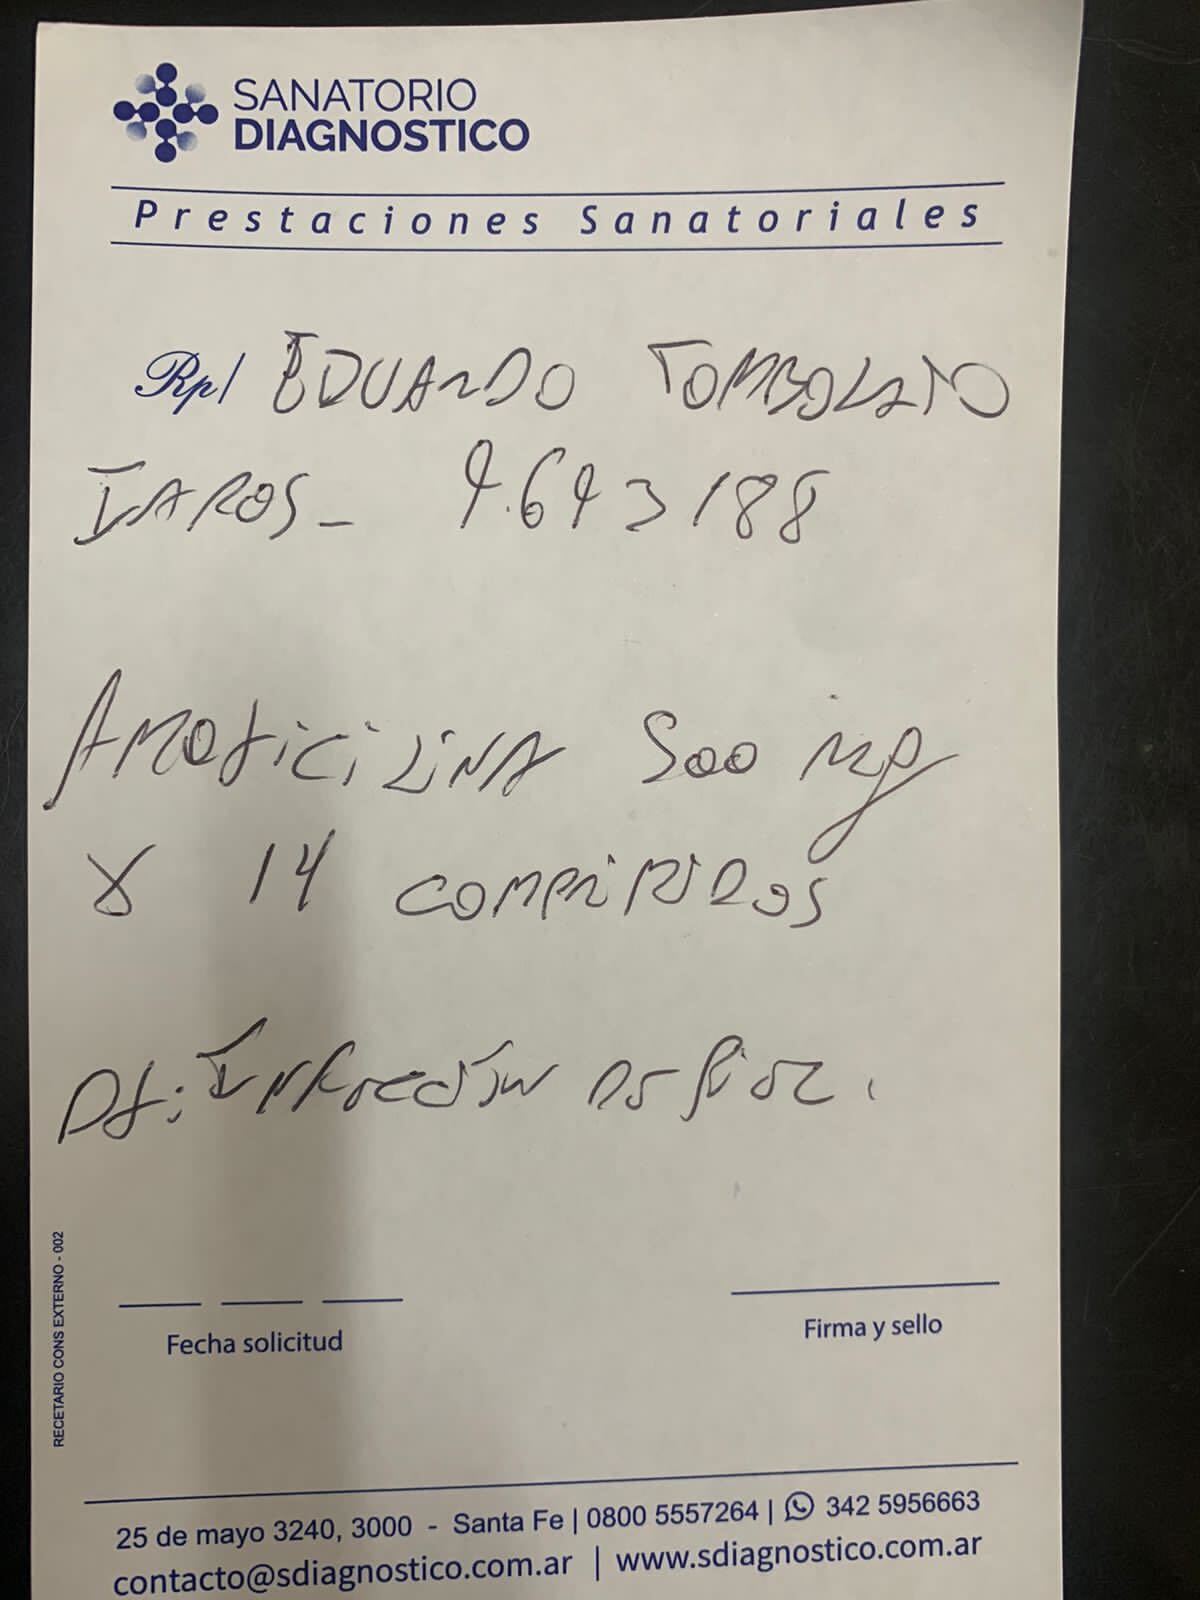 SANATORIO
DIAGNOSTICO
Prestaciones Sanatoriales
Rp/ EDUARDO TOMBOLATO
IAPOS - 4.643188
AMOXICILINA 500 mg
x 14 COMPRIMIDOS
DX: INFECCIÓN DE PIEL.
RECETARIO CONS EXTERNO - 002
Fecha solicitud
Firma y sello
25 de mayo 3240, 3000 - Santa Fe | 0800 5557264 | 342 5956663
contacto@sdiagnostico.com.ar | www.sdiagnostico.com.ar